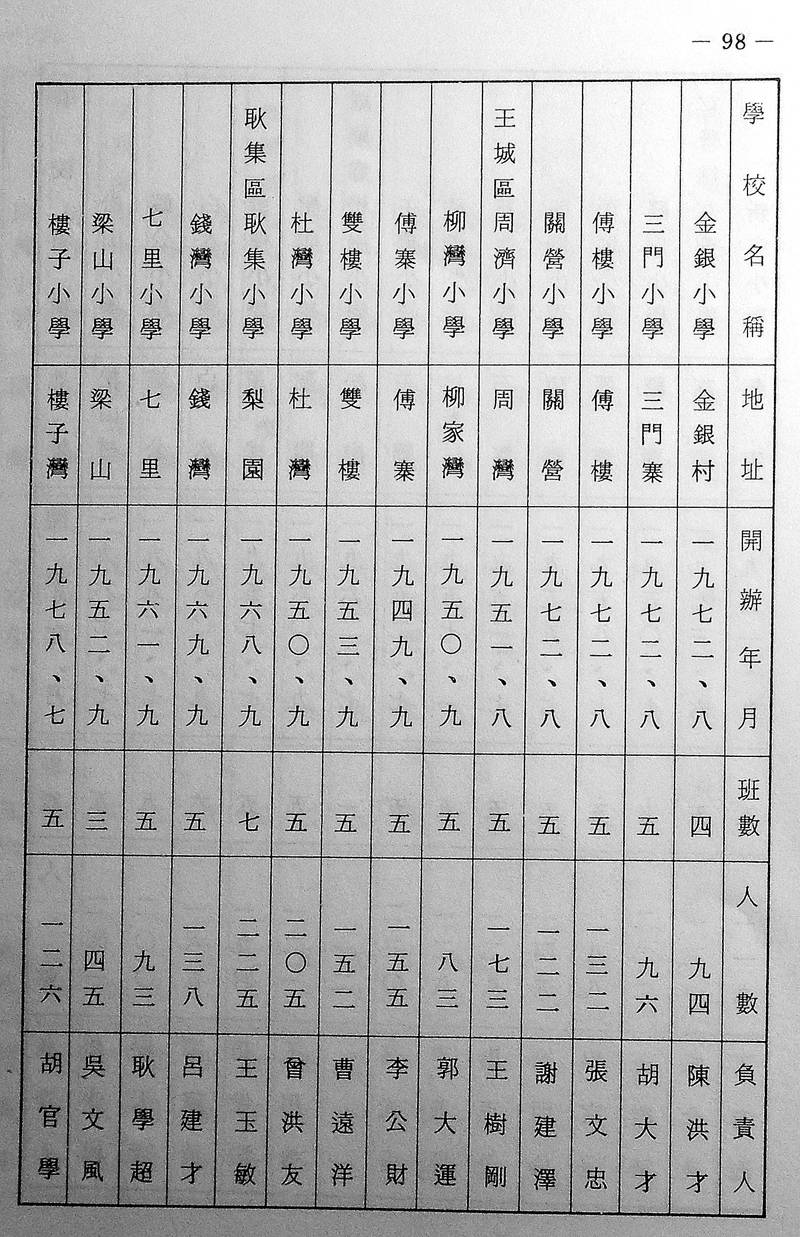 — 98 —
學校名稱 地址 開辦年月 班數 人數 負責人
金銀小學 金銀村 一九七二、八 四 九四 陳洪才
三門小學 三門寨 一九七二、八 五 九六 胡大才
傅樓小學 傅樓 一九七二、八 五 一三二 張文忠
關營小學 關營 一九七二、八 五 一二二 謝建澤
王城區周濟小學 周灣 一九五一、八 五 一七三 王樹剛
柳灣小學 柳家灣 一九五〇、九 五 八三 郭大運
傅寨小學 傅寨 一九四九、九 五 一五五 李公財
雙樓小學 雙樓 一九五三、九 五 一五二 曹遠洋
杜灣小學 杜灣 一九五〇、九 五 二〇五 曾洪友
耿集區耿集小學 梨園 一九六八、九 七 二二五 王玉敏
錢灣小學 錢灣 一九六九、九 五 一三八 呂建才
七里小學 七里 一九六一、九 五 九三 耿學超
梁山小學 梁山 一九五二、九 三 四五 吳文風
樓子小學 樓子灣 一九七八、七 五 一二六 胡官學